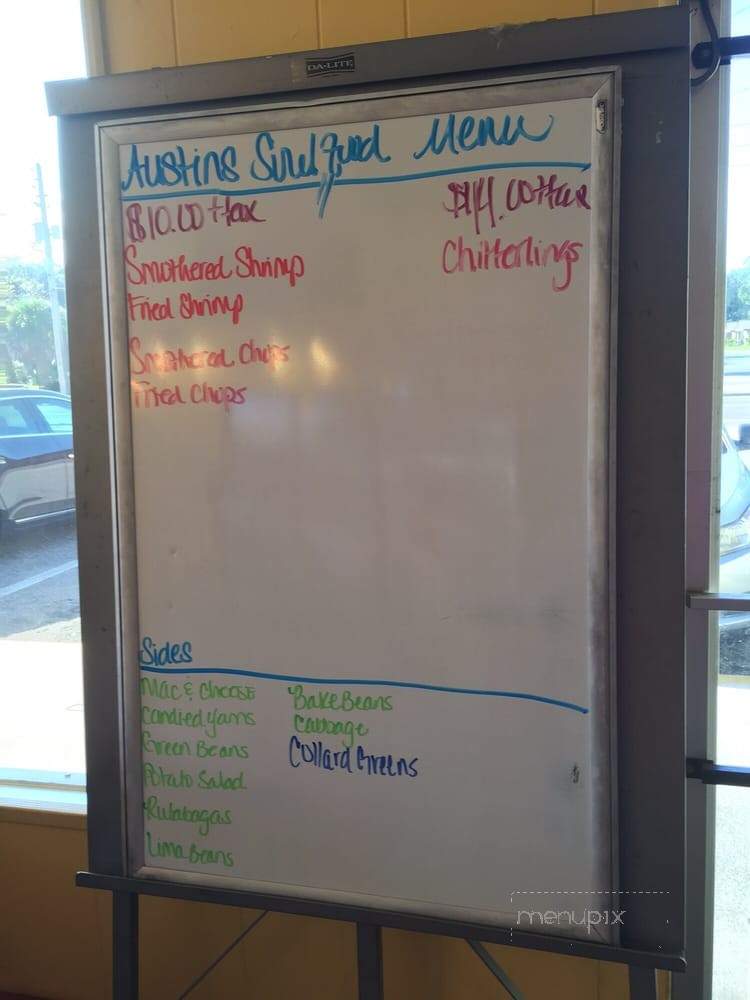 DA-LITE
Austins Soul Food Menu
$10.00 + tax
Smothered Shrimp
Fried Shrimp
Smothered Chops
Fried Chops
$14.00 + tax
Chitterlings
Sides
Mac & Cheese
Candied Yams
Green Beans
Potato Salad
Rutabagas
Lima Beans
Bake Beans
Cabbage
Collard Greens
menupix